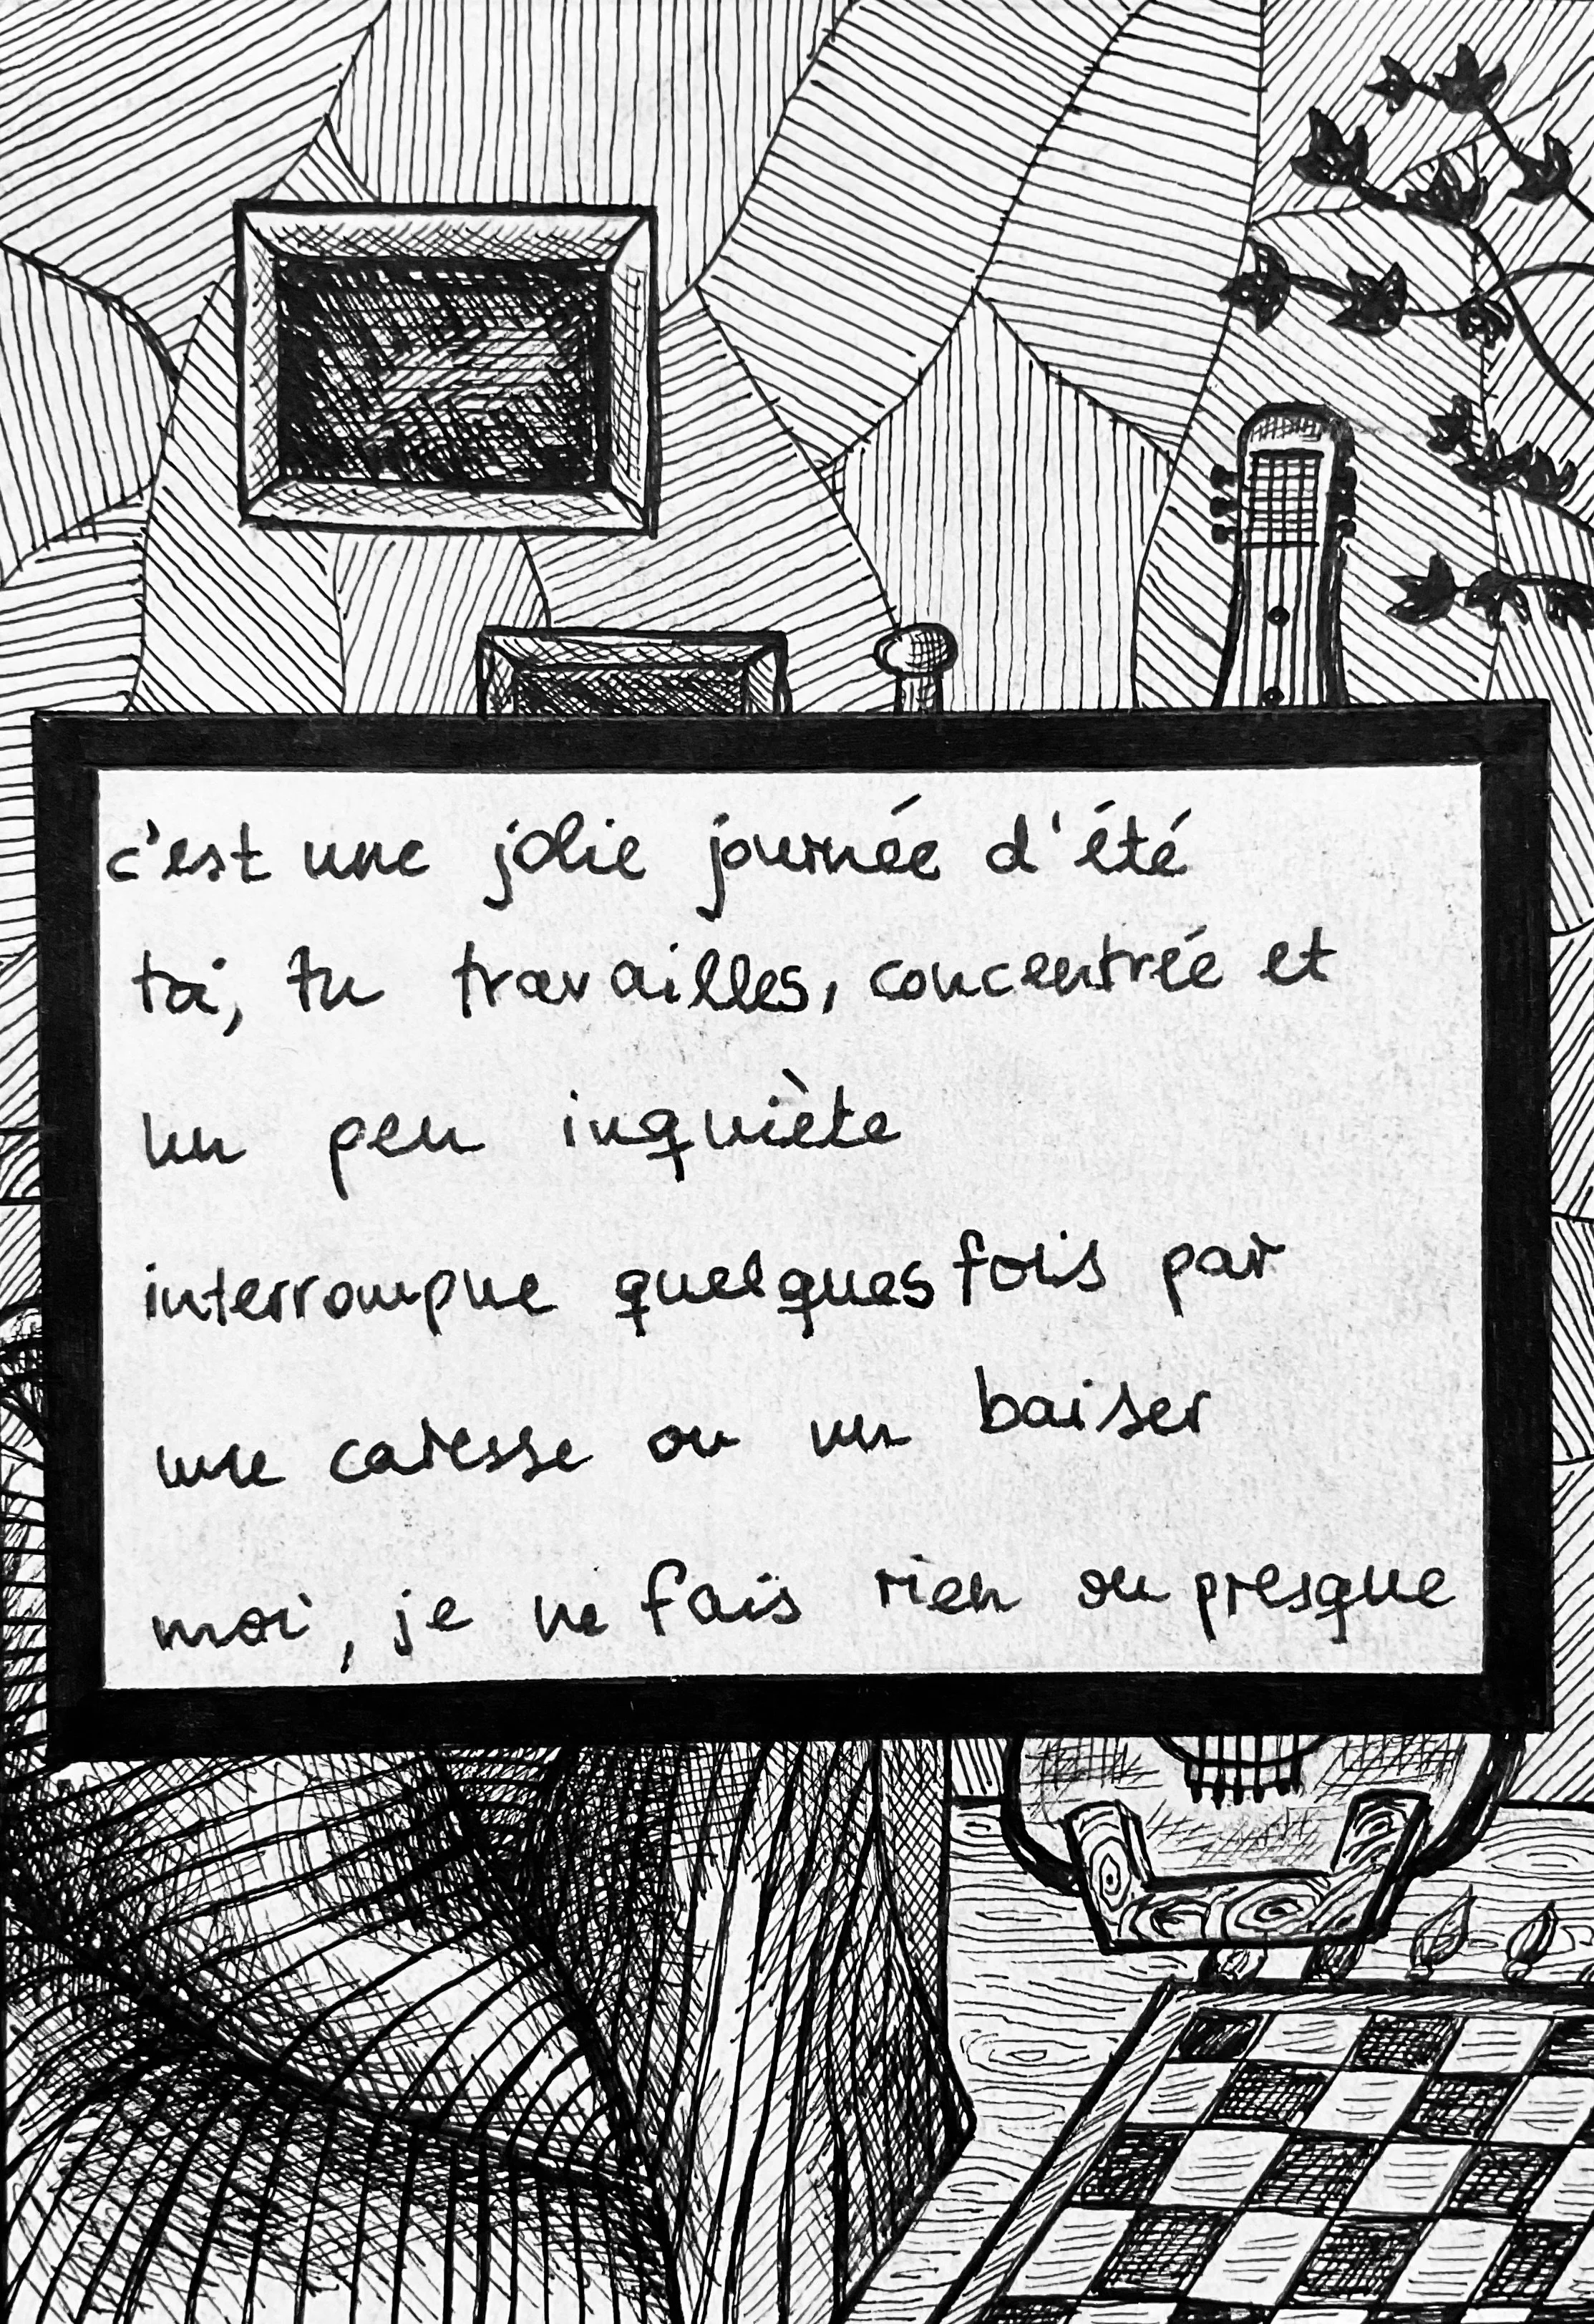 c'est une jolie journée d'été
toi, tu travailles, concentrée et
un peu inquiète
interrompue quelques fois par
une caresse ou un baiser
moi, je ne fais rien ou presque